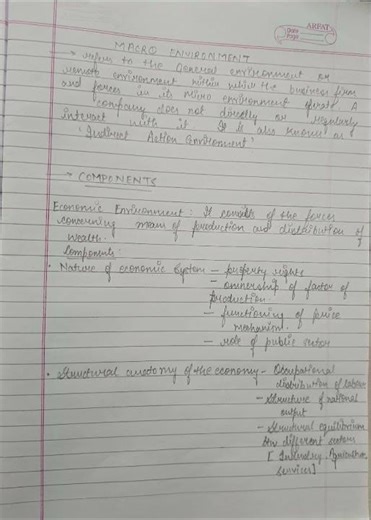 ARPAT
Date
Page
MACRO ENVIRONMENT
→ refers to the General environment or
remote environment within which the business firm
and forces in its micro environment operate. A
company does not directly or regularly
interact with it. It is also known as
'Indirect Action Environment'
→ COMPONENTS
Economic Environment: It consists of the forces
concerning means of production and distribution of
wealth.
Components:
• Nature of economic system - property rights
- ownership of factor of
production.
- functioning of price
mechanism.
- role of public sector
• Structural anatomy of the economy - Occupational
distribution of labour
- Structure of national
output
- Structural equilibrium
b/w different sectors
[Industry, Agriculture,
Services]